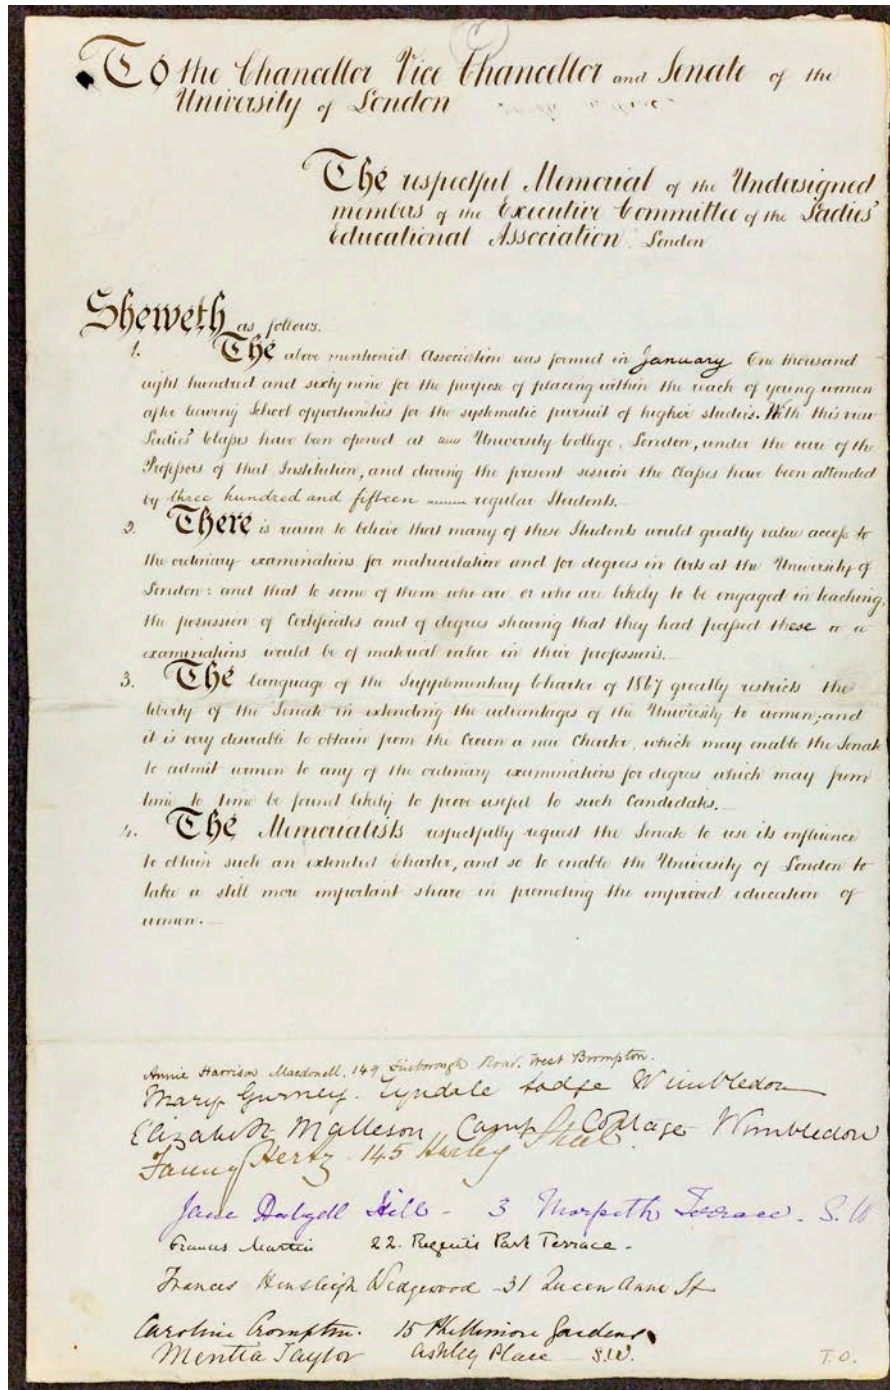 To the Chancellor Vice Chancellor and Senate of the
University of London
The respectful Memorial of the Undersigned
members of the Executive Committee of the Ladies'
Educational Association London
Sheweth as follows.
1. The above mentioned Association was formed in January One thousand
eight hundred and sixty nine for the purpose of placing within the reach of young women
after leaving School opportunities for the systematic pursuit of higher studies. With this view
Ladies' Classes have been opened at University College, London, under the care of the
Professors of that Institution, and during the present session the Classes have been attended
by three hundred and fifteen regular Students.
2. There is reason to believe that many of these Students would greatly value access to
the ordinary examinations for matriculation and for degrees in Arts at the University of
London: and that to some of them who are or who are likely to be engaged in teaching,
the possession of Certificates and of degrees shewing that they had passed these
examinations would be of material value in their professions.
3. The language of the Supplementary Charter of 1867 greatly restricts the
liberty of the Senate in extending the advantages of the University to women; and
it is very desirable to obtain from the Crown a new Charter, which may enable the Senate
to admit women to any of the ordinary examinations for degrees which may from
time to time be found likely to prove useful to such Candidates.
4. The Memorialists respectfully request the Senate to use its influence
to obtain such an extended Charter, and so to enable the University of London to
take a still more important share in promoting the improved education of
women.
Annie Harrison Macdonell, 149 Finborough Road. West Brompton.
Mary Gurney. Tyndale Lodge Wimbledon
Elizabeth Malleson, Camp Cottage Wimbledon
Fanny Hertz 145 Harley Street
Jane Dalzell Hill - 3 Morpeth Terrace. S.W
Frances Martin 22. Regents Park Terrace.
Frances Hensleigh Wedgwood 31 Queen Anne St
Caroline Crompton. 15 Phillimore Gardens
Mentia Taylor Ashley Place S.W.
T.O.